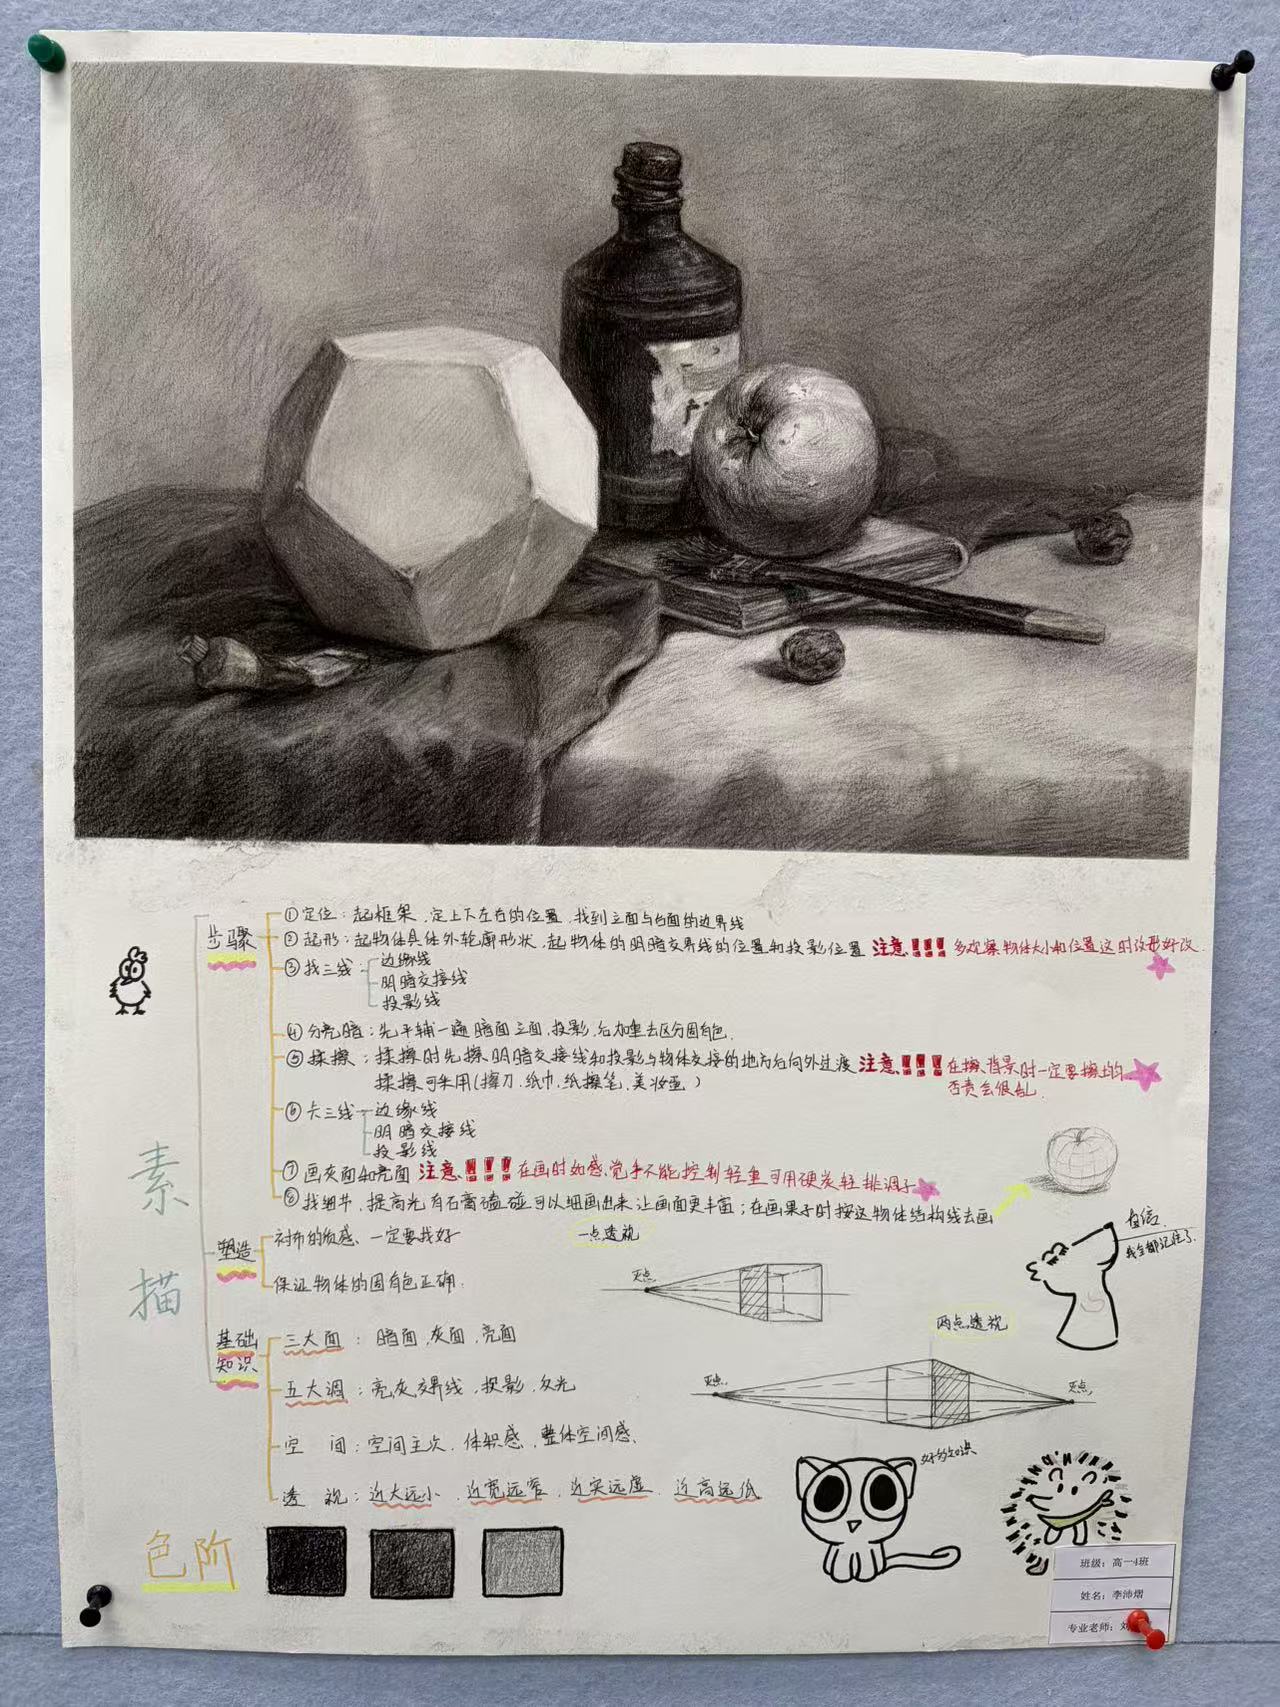 素描
步骤
①定位：起框架，定上下左右的位置，找到立面与台面的边界线
②起形：起物体具体外轮廓形状，起物体的明暗交界线的位置和投影位置 注意!!! 多观察物体大小和位置这时改形好改
③找三线：边缘线
明暗交接线
投影线
④分亮暗：先平铺一遍暗面立面，投影，后加重去区分固有色.
⑤揉擦：揉擦时先擦明暗交接线和投影与物体交接的地方后向外过渡 注意!!! 在擦背景时一定要擦均
否责会很乱
揉擦可采用(擦刀.纸巾.纸擦笔.美妆蛋)
⑥卡三线 边缘线
明暗交接线
投影线
⑦画灰面和亮面 注意!!! 在画时如感觉手不能控制轻重可用硬炭轻排调子
⑧找细节，提高光，有石膏磕碰可以细画出来，让画面更丰富；在画果子时按这物体结构线去画
塑造
衬布的质感、一定要找好
保证物体的固有色正确.
一点透视
灭点
自信.
我全都记住了.
基础
知识
三大面：暗面，灰面，亮面
两点透视
五大调：亮，灰，交界线，投影，反光
灭点
灭点
空 间：空间主次，体积感，整体空间感.
好的知识
透 视：近大远小，近宽远窄，近实远虚，近高远低
色阶
班级：高一4班
姓名：李沛熠
专业老师：刘